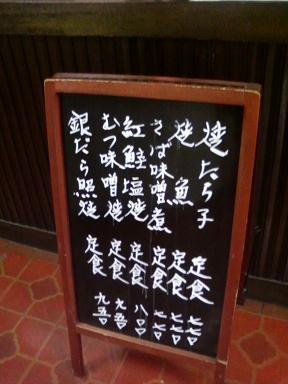 焼たら子定食七七〇
焼魚定食七七〇
さば味噌煮定食七七〇
紅鮭塩焼定食八〇〇
むつ味噌焼定食九五〇
銀だら照焼定食九五〇